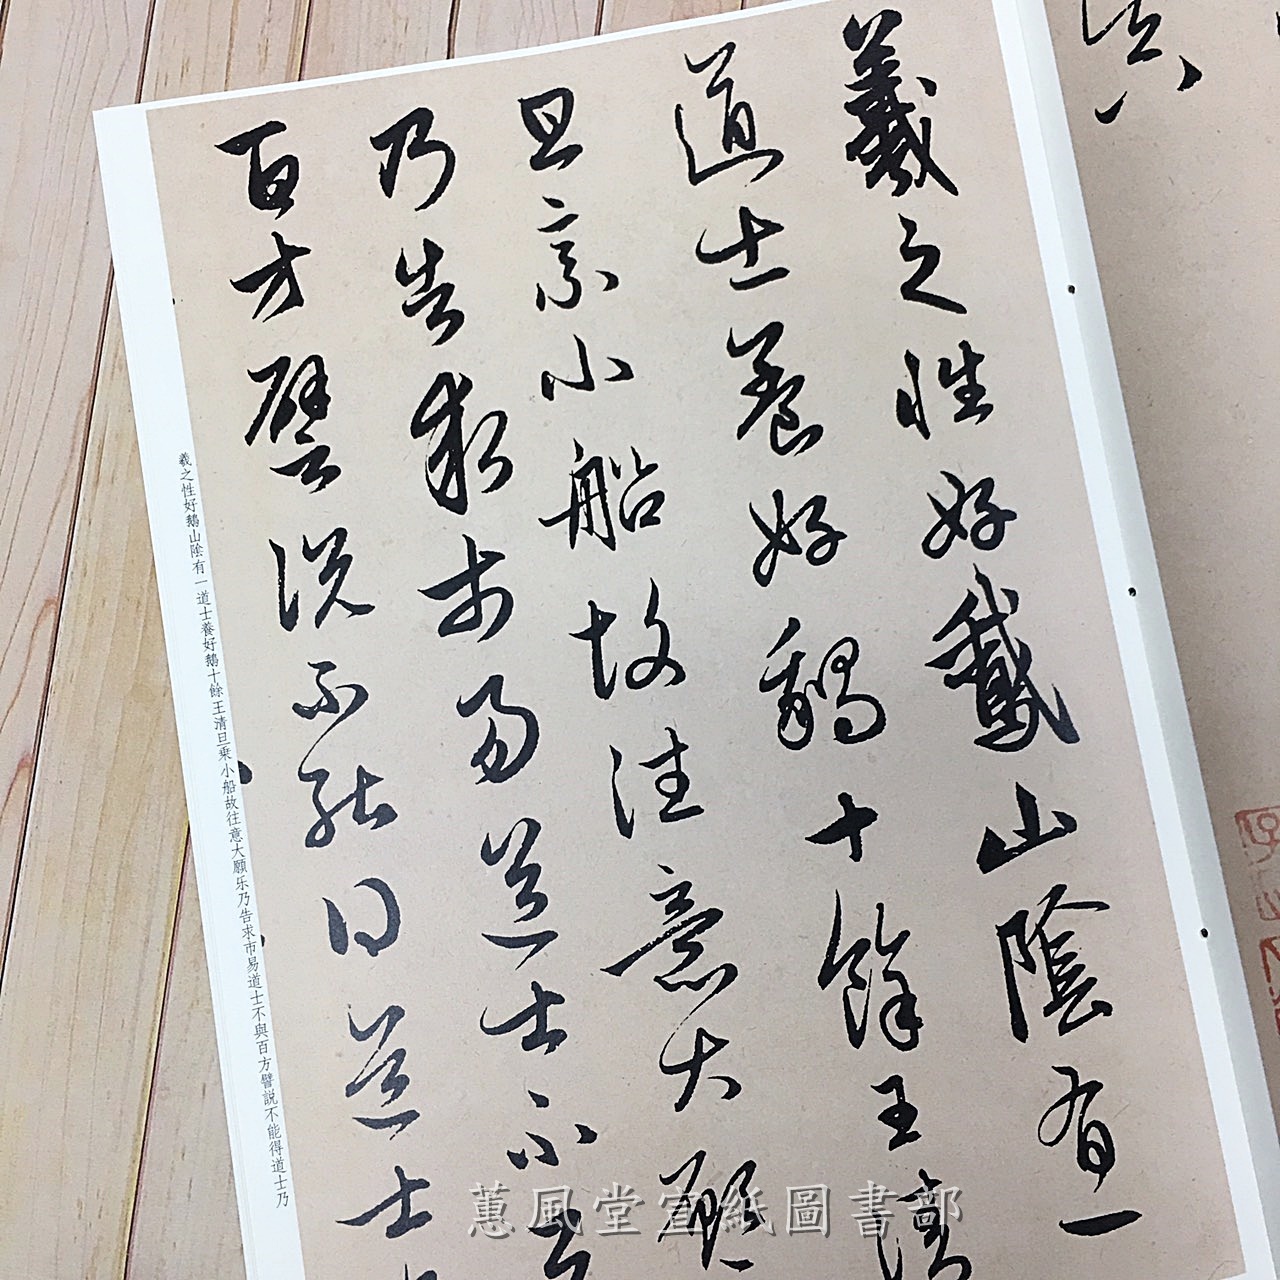 羲之性好鵝山陰有一
道士養好鵝十餘王清
旦乗小船故往意大願
乃告求市易道士不
百方譬説不能得道士
羲之性好鵝山陰有一道士養好鵝十餘王清旦乗小船故往意大願乐乃告求市易道士不與百方譬説不能得道士乃
蕙風堂宣紙圖書部